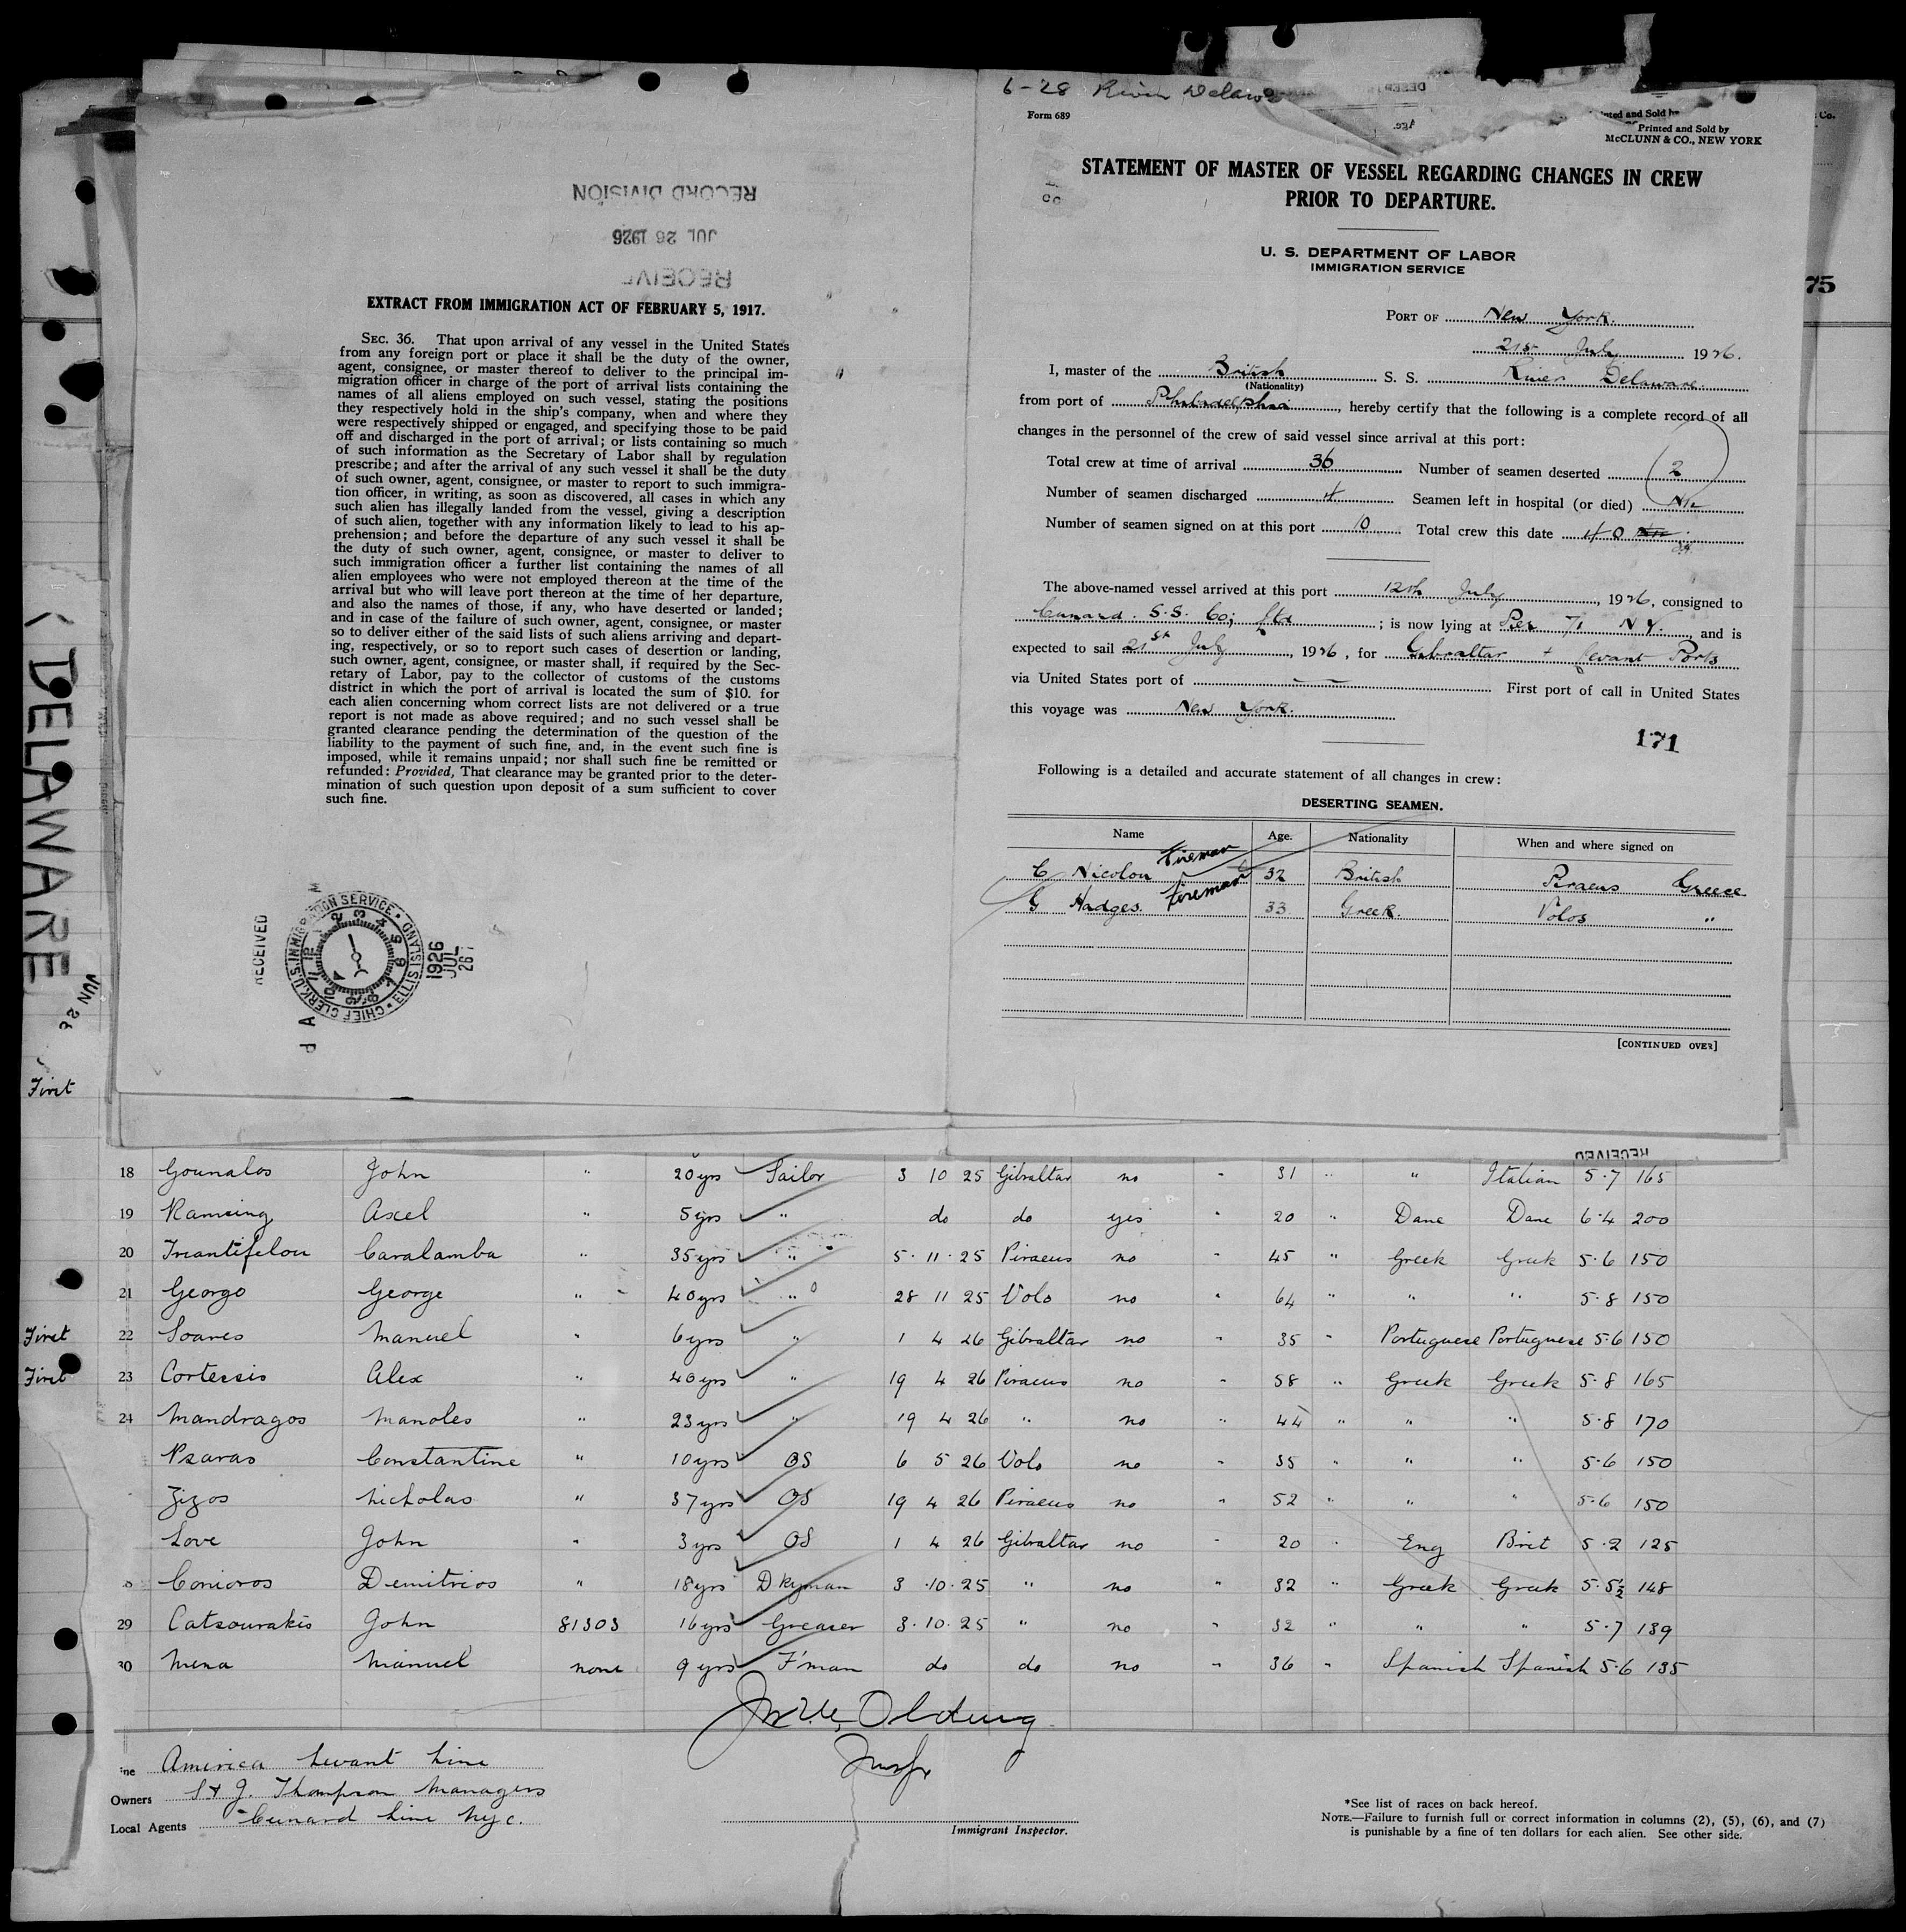 RECORD DIVISION
JUL 26 1926
EXTRACT FROM IMMIGRATION ACT OF FEBRUARY 5, 1917.
SEC. 36. That upon arrival of any vessel in the United States
from any foreign port or place it shall be the duty of the owner,
agent, consignee, or master thereof to deliver to the principal im-
migration officer in charge of the port of arrival lists containing the
names of all aliens employed on such vessel, stating the positions
they respectively hold in the ship's company, when and where they
were respectively shipped or engaged, and specifying those to be paid
off and discharged in the port of arrival; or lists containing so much
of such information as the Secretary of Labor shall by regulation
prescribe; and after the arrival of any such vessel it shall be the duty
of such owner, agent, consignee, or master to report to such immigra-
tion officer, in writing, as soon as discovered, all cases in which any
such alien has illegally landed from the vessel, giving a description
of such alien, together with any information likely to lead to his ap-
prehension; and before the departure of any such vessel it shall be
the duty of such owner, agent, consignee, or master to deliver to
such immigration officer a further list containing the names of all
alien employees who were not employed thereon at the time of the
arrival but who will leave port thereon at the time of her departure,
and also the names of those, if any, who have deserted or landed;
and in case of the failure of such owner, agent, consignee, or master
so to deliver either of the said lists of such aliens arriving and depart-
ing, respectively, or so to report such cases of desertion or landing,
such owner, agent, consignee, or master shall, if required by the Sec-
retary of Labor, pay to the collector of customs of the customs
district in which the port of arrival is located the sum of $10. for
each alien concerning whom correct lists are not delivered or a true
report is not made as above required; and no such vessel shall be
granted clearance pending the determination of the question of the
liability to the payment of such fine, and, in the event such fine is
imposed, while it remains unpaid; nor shall such fine be remitted or
refunded: Provided, That clearance may be granted prior to the deter-
mination of such question upon deposit of a sum sufficient to cover
such fine.
RECEIVED
CHIEF CLERK U.S. IMMIGRATION SERVICE • ELLIS ISLAND
1926 JUL 26
DELAWARE
6-28 River Delaw
Form 689
Printed and Sold by
McCLUNN & CO., NEW YORK
STATEMENT OF MASTER OF VESSEL REGARDING CHANGES IN CREW
PRIOR TO DEPARTURE.
U. S. DEPARTMENT OF LABOR
IMMIGRATION SERVICE
75
PORT OF New York.
21st July 1926.
I, master of the British S. S. River Delaware
(Nationality)
from port of Philadelphia, hereby certify that the following is a complete record of all
changes in the personnel of the crew of said vessel since arrival at this port:
Total crew at time of arrival 36 Number of seamen deserted 2
Number of seamen discharged 4 Seamen left in hospital (or died) Nil
Number of seamen signed on at this port 10 Total crew this date 40
The above-named vessel arrived at this port 12th July, 1926, consigned to
Cunard. S.S. Co; Ltd; is now lying at Pier 71 N.Y. and is
expected to sail 21st July, 1926, for Gibraltar + Levant Ports
via United States port of — First port of call in United States
this voyage was New York.
171
Following is a detailed and accurate statement of all changes in crew:
DESERTING SEAMEN.
Name Age. Nationality When and where signed on
C Nicolou Fireman 32 British Piraeus Greece
G Hadges. Fireman 33 Greek. Volos "
[CONTINUED OVER]
First
RECEIVED
18 Gounalos John " 20 yrs Sailor 3 10 25 Gibraltar no " 31 " " Italian 5.7 165
19 Ramsing Axel " 5 yrs " do do yes " 20 " Dane Dane 6.4 200
20 Triantifelou Caralamba " 35 yrs " 5. 11. 25 Piraeus no " 45 " Greek Greek 5.6 150
21 Georgo George " 40 yrs " 28 11 25 Volo no " 64 " " " 5.8 150
First 22 Soares Manuel " 6 yrs " 1 4 26 Gibraltar no " 35 " Portuguese Portuguese 5.6 150
First 23 Cortessis Alex " 40 yrs " 19 4 26 Piraeus no " 58 " Greek Greek 5.8 165
24 Mandragos Manoles " 23 yrs " 19 4 26 " no " 44 " " " 5.8 170
Psaras Constantine " 10 yrs OS 6 5 26 Volo no " 35 " " " 5.6 150
Zizos Nicholas " 37 yrs OS 19 4 26 Piraeus no " 52 " " " 5.6 150
Love John " 3 yrs OS 1 4 26 Gibraltar no " 20 " Eng Brit 5.2 125
8 Conioros Demitrios " 18 yrs Dkyman 3. 10. 25 " no " 32 " Greek Greek 5.5½ 148
29 Catsourakis John 81303 16 yrs Greaser 3. 10. 25 " no " 32 " " " 5.7 139
30 Mena Manuel none 9 yrs F'man do do no " 36 " Spanish Spanish 5.6 135
ine America Levant Line
Owners S & J. Thompson Managers
Local Agents Cunard Line N.Y.C.
Immigrant Inspector.
*See list of races on back hereof.
NOTE.—Failure to furnish full or correct information in columns (2), (5), (6), and (7)
is punishable by a fine of ten dollars for each alien. See other side.